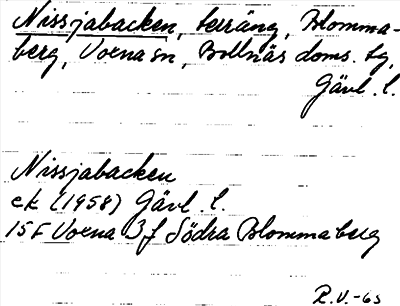 Nissjabacken, terräng, Blomma-
berg, Voxna sn, Bollnäs doms. tg,
Gävl. l.
Nissjabacken
ek (1958) Gävl. l.
15F Voxna 3f Södra Blommaberg
R.V.-65